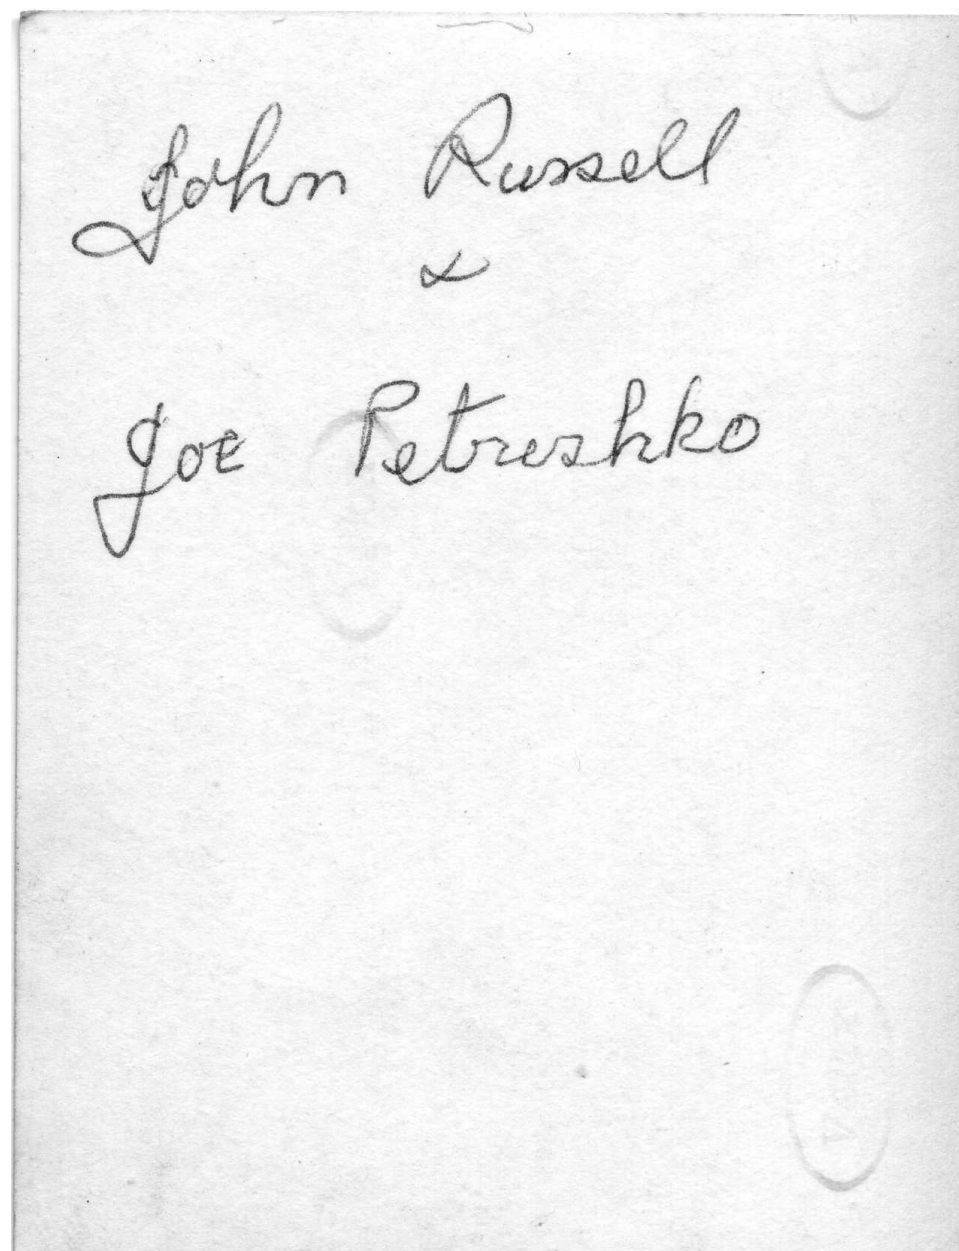 John Russell
&
Joe Petrushko